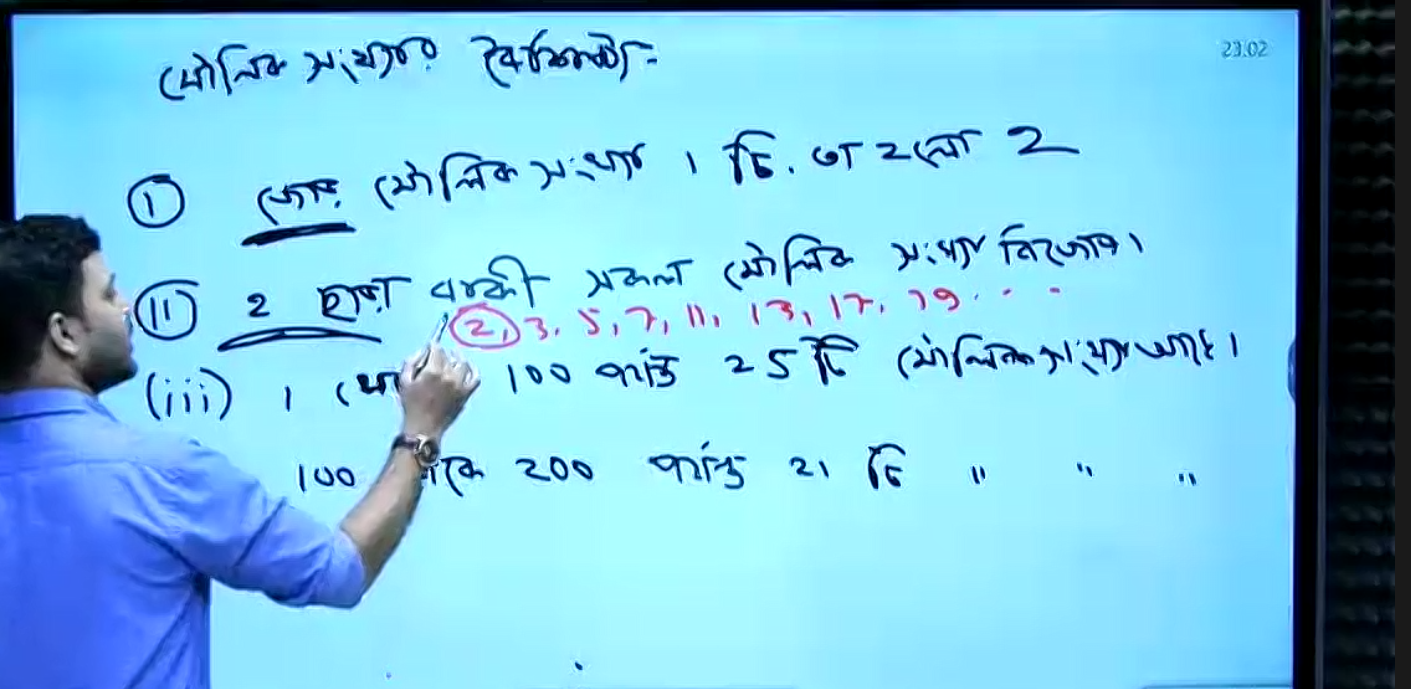 23:02
মৌলিক সংখ্যার বৈশিষ্ট্য -
① জোড় মৌলিক সংখ্যা ১ টি. তা হলো 2
② 2 ছাড়া বাকী সকল মৌলিক সংখ্যা বিজোড়।
2, 3, 5, 7, 11, 13, 17, 19 . . .
(iii) 1 100 পর্যন্ত 25 টি মৌলিক সংখ্যা আছে।
100 200 পর্যন্ত 21 টি " " "